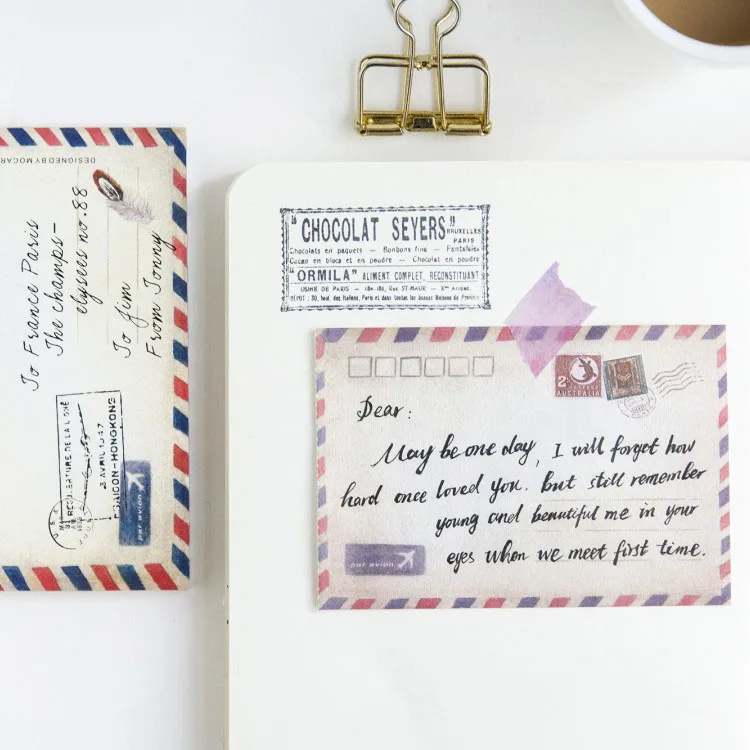 DESIGNED BY MOCAR
To France Paris
The champs-
elysees no.88
To Jim
From Tonny
REOUVERTURE DE LA LIGNE
3 AVRIL 1947
SAIGON-HONGKONG
PAR AVION
"CHOCOLAT SEYERS" BRUXELLES
PARIS
Chocolats en paquets — Bonbons fins — Fantaisies
Cacao en blocs et en poudre — Chocolat en poudre
"ORMILA" ALIMENT COMPLET, RECONSTITUANT
USINE DE PARIS — 184-186, Rue ST-MAUR — Xme Arrond.
DÉPOT : 30, boul. des Italiens, Paris et dans toutes les bonnes Maisons de
2
AUSTRALIA
Dear:
May be one day, I will forget how
hard once loved you. but still remember
young and beautiful me in your
eyes when we meet first time.
PAR AVION